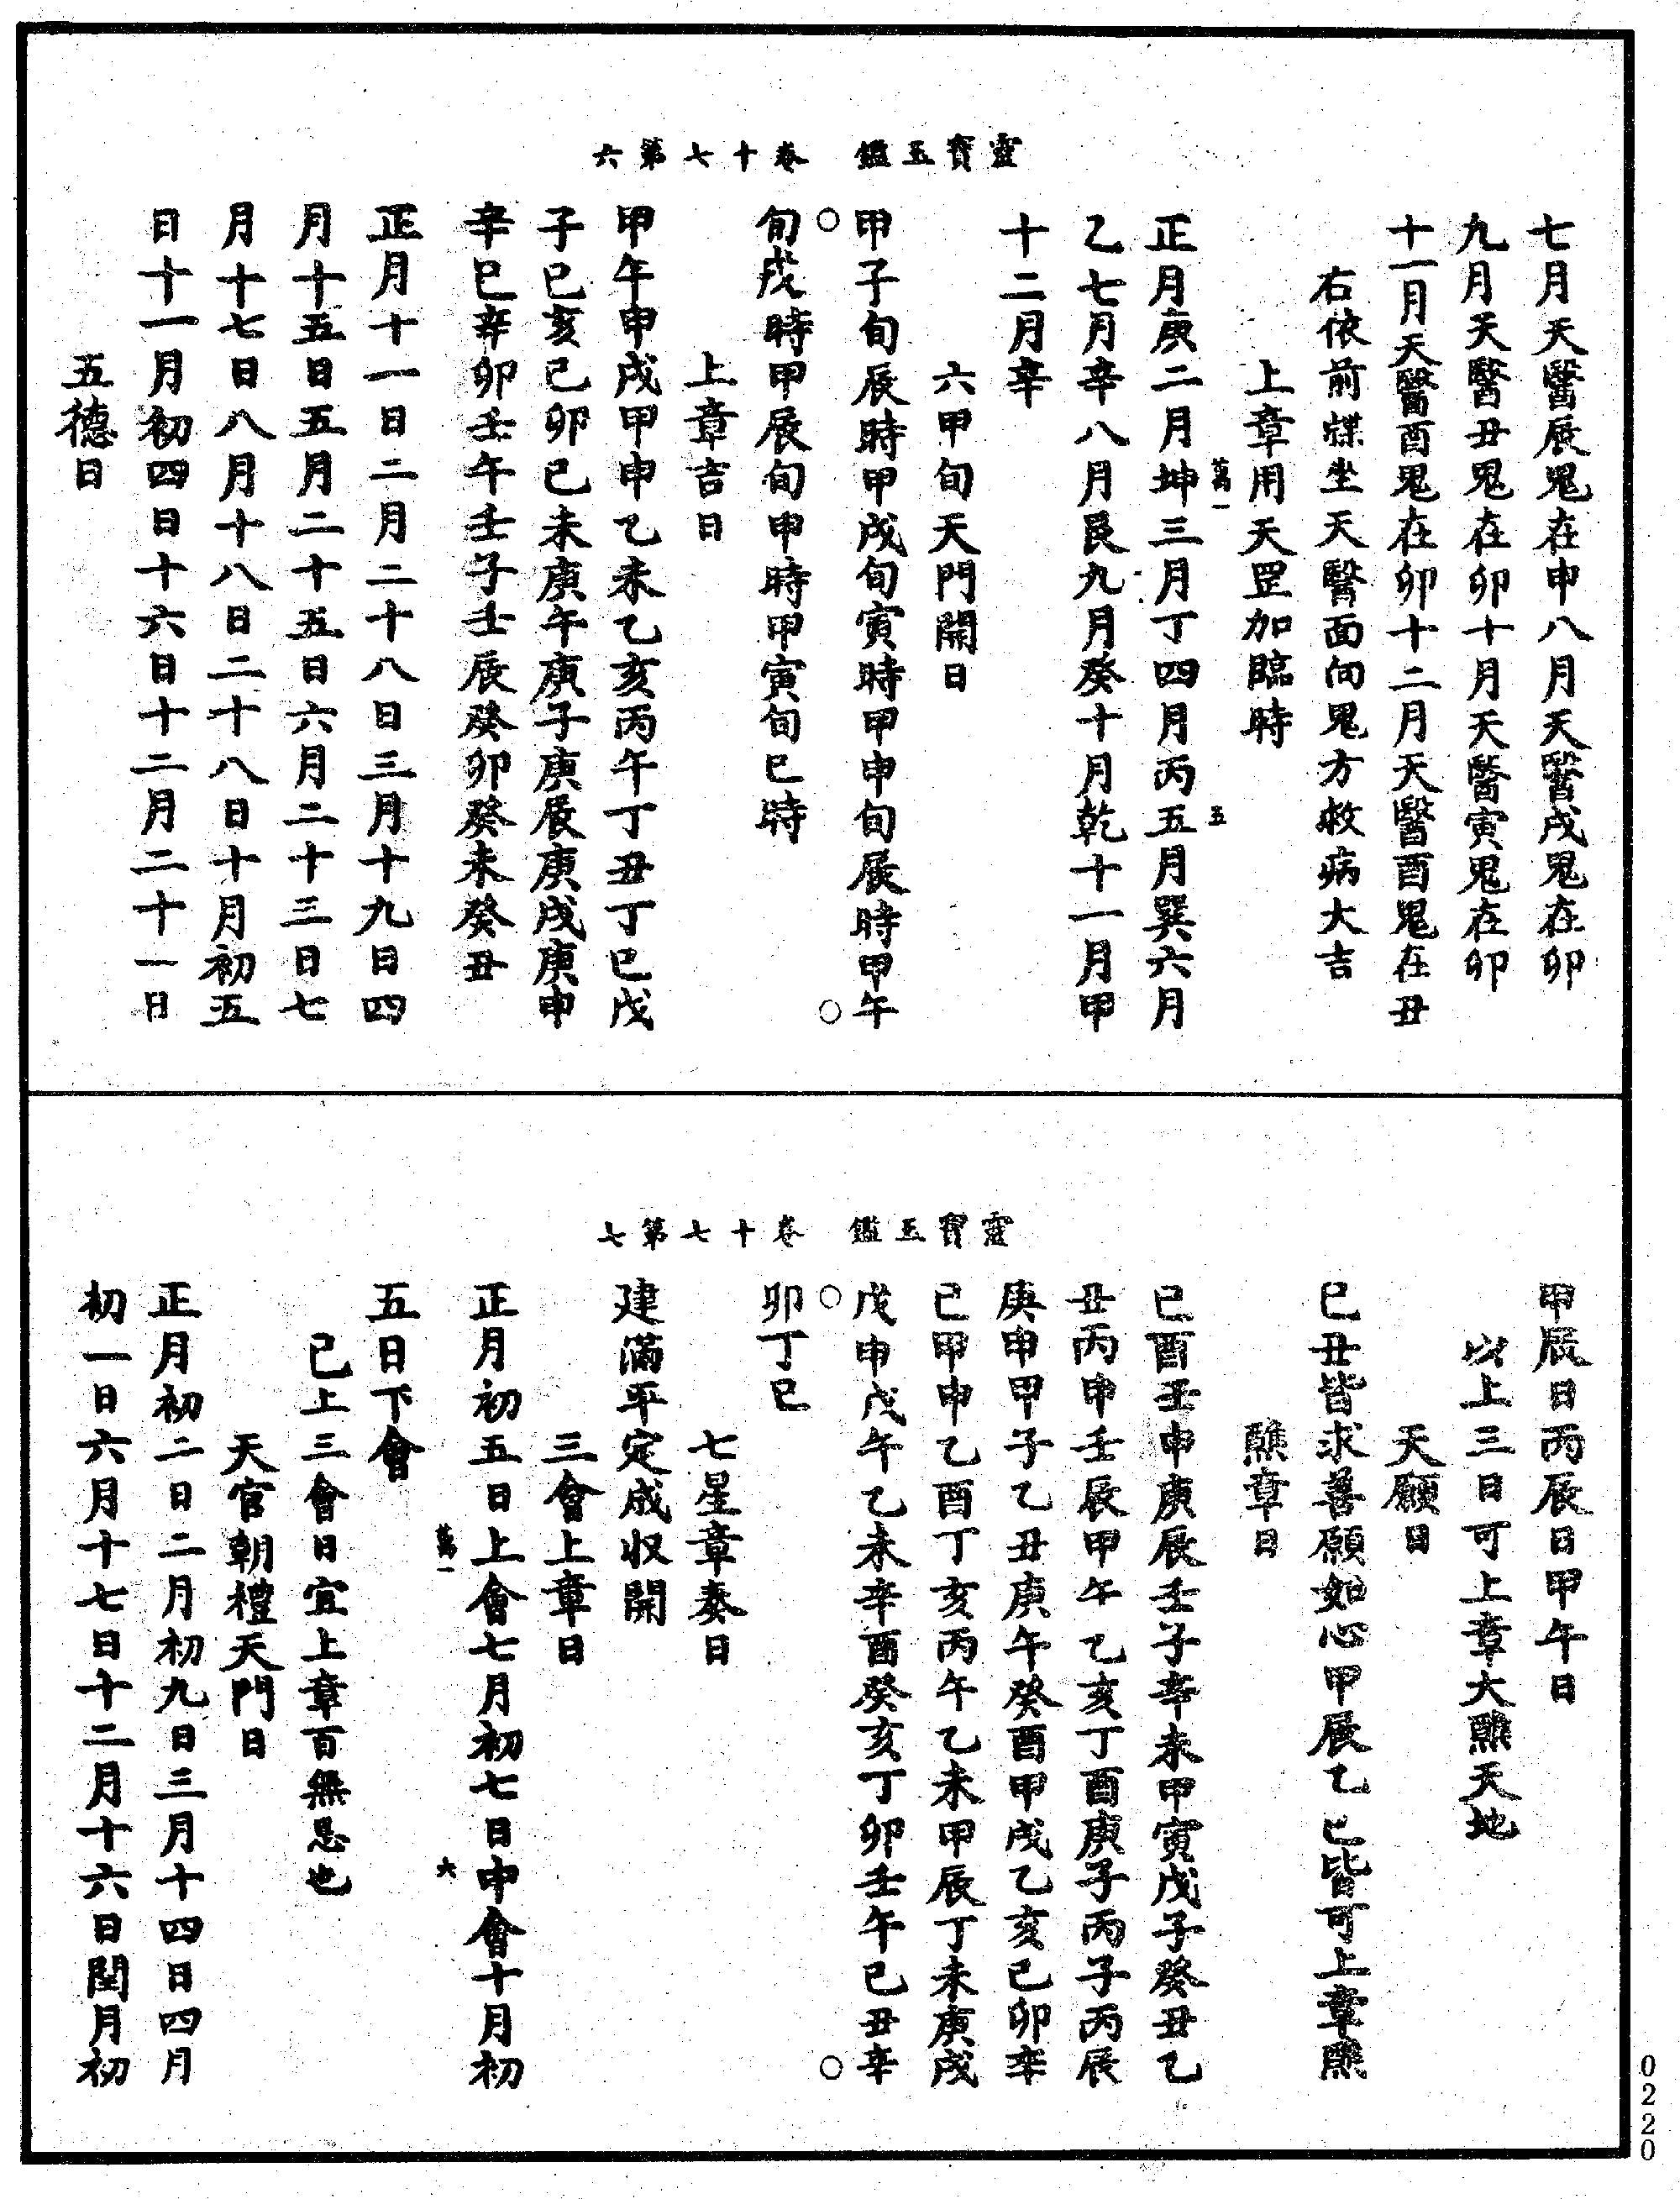 靈寶玉鑑　卷十七第六
七月天醫辰鬼在申八月天醫戌鬼在卯
九月天醫丑鬼在卯十月天醫寅鬼在卯
十一月天醫酉鬼在卯十二月天醫酉鬼在丑
右依前牒坐天醫面向鬼方救病大吉
上章用天罡加臨時
萬一　五
正月庚二月坤三月丁四月丙五月巽六月
乙七月辛八月艮九月癸十月乾十一月甲
十二月辛
六甲旬天門開日
甲子旬辰時甲戌旬寅時甲申旬辰時甲午
旬戌時甲辰旬申時甲寅旬巳時
上章吉日
甲午甲戌甲申乙未乙亥丙午丁丑丁巳戊
子己亥己卯己未庚午庚子庚辰庚戌庚申
辛巳辛卯壬午壬子壬辰癸卯癸未癸丑
正月十一日二月二十八日三月十九日四
月十五日五月二十五日六月二十三日七
月十七日八月十八日二十八日十月初五
日十一月初四日十六日十二月二十一日
五德日
靈寶玉鑑　卷十七第七
甲辰日丙辰日甲午日
以上三日可上章大醮天地
天願日
巳丑皆求善願如心甲辰乙巳皆可上章醮
醮章日
己酉壬申庚辰壬子辛未甲寅戊子癸丑乙
丑丙申壬辰甲午乙亥丁酉庚子丙子丙辰
庚申甲子乙丑庚午癸酉甲戌乙亥己卯辛
巳甲申乙酉丁亥丙午乙未甲辰丁未庚戌
戊申戊午乙未辛酉癸亥丁卯壬午己丑辛
卯丁巳
七星章奏日
建滿平定成收開
三會上章日
正月初五日上會七月初七日中會十月初
萬一　六
五日下會
已上三會日宜上章百無忌也
天官朝禮天門日
正月初二日二月初九日三月十四日四月
初一日六月十七日十二月十六日閏月初
0220